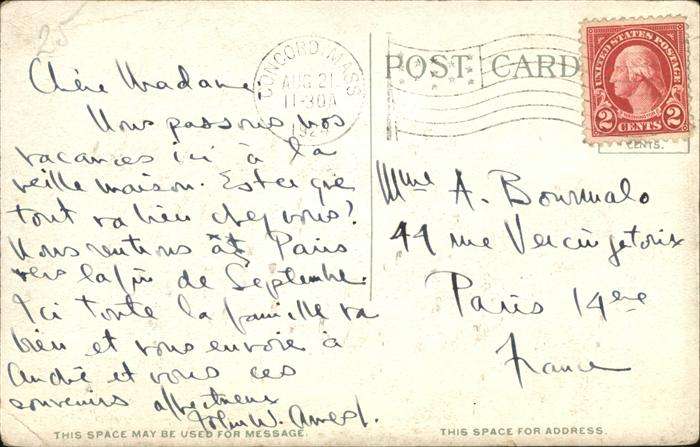 25
Chère Madame
Nous passons nos
vacances ici à la
vieille maison. Est ce que
tout va bien chez vous?
Nous rentrons à Paris
vers la fin de Septembre.
Ici toute la famille va
bien et vous envoie à
André et vous ces
souvenirs affectueux
John W. Ames Jr.
CONCORD, MASS
AUG 21
11-30A
POST CARD
UNITED STATES POSTAGE
WASHINGTON
2 CENTS 2
CENTS.
Mme A. Bourmalo
44 rue Vercingetorix
Paris 14ème
France
THIS SPACE MAY BE USED FOR MESSAGE.
THIS SPACE FOR ADDRESS.